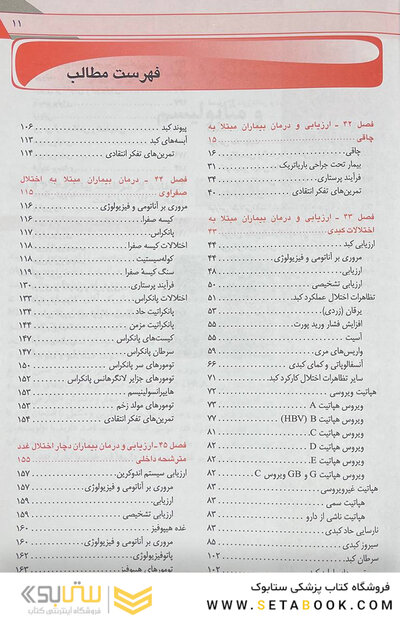 ۱۱
فهرست مطالب
فصل ۴۲ - ارزیابی و درمان بیماران مبتلا به
چاقی ۱۵
چاقی ۱۶
بیمار تحت جراحی باریاتریک ۳۱
فرآیند پرستاری ۳۴
تمرین‌های تفکر انتقادی ۴۰
فصل ۴۳ - ارزیابی و درمان بیماران مبتلا به
اختلالات کبدی ۴۳
ارزیابی کبد ۴۴
مروری بر آناتومی و فیزیولوژی ۴۴
ارزیابی ۴۸
ارزیابی تشخیصی ۵۰
تظاهرات اختلال عملکرد کبد ۵۱
یرقان (زردی) ۵۳
افزایش فشار ورید پورت ۵۵
آسیت ۵۵
واریس‌های مری ۵۹
آنسفالوپاتی و کمای کبدی ۶۶
سایر تظاهرات اختلال کارکرد کبد ۷۱
هپاتیت ویروسی ۷۲
ویروس هپاتیت A ۷۳
ویروس هپاتیت B (HBV) ۷۷
ویروس هپاتیت C ۸۱
ویروس هپاتیت D ۸۲
ویروس هپاتیت E ۸۲
ویروس هپاتیت G و GB ویروس C ۸۲
هپاتیت غیرویروسی ۸۳
هپاتیت سمی ۸۳
هپاتیت ناشی از دارو ۸۳
نارسایی حاد کبدی ۸۳
سیروز کبدی ۸۴
سرطان کبد ۱۰۲
پیوند کبد ۱۰۶
آبسه‌های کبد ۱۱۳
تمرین‌های تفکر انتقادی ۱۱۴
فصل ۴۴ - درمان بیماران مبتلا به اختلال
صفراوی ۱۱۵
مروری بر آناتومی و فیزیولوژی ۱۱۶
کیسه صفرا ۱۱۶
پانکراس ۱۱۷
اختلالات کیسه صفرا ۱۱۸
کوله‌سیستیت ۱۱۸
سنگ کیسهٔ صفرا ۱۱۹
فرآیند پرستاری ۱۳۰
اختلالات پانکراس ۱۳۳
پانکراتیت حاد ۱۳۴
پانکراتیت مزمن ۱۴۴
کیست‌های پانکراس ۱۴۷
سرطان پانکراس ۱۴۷
تومورهای سر پانکراس ۱۵۰
تومورهای جزایر لانگرهانس پانکراس ۱۵۲
هایپرانسولینیسم ۱۵۳
تومورهای مولد زخم ۱۵۳
تمرین‌های تفکر انتقادی ۱۵۴
فصل ۴۵ - ارزیابی و درمان بیماران دچار اختلال غدد
مترشحه داخلی ۱۵۵
ارزیابی سیستم اندوکرین ۱۵۷
مروری بر آناتومی و فیزیولوژی ۱۵۷
ارزیابی ۱۵۹
ارزیابی تشخیصی ۱۵۹
غده هیپوفیز ۱۶۰
مروری بر آناتومی و فیزیولوژی ۱۶۰
پاتوفیزیولوژی ۱۶۲
تومورهای هیپوفیز ۱۶۳
فروشگاه کتاب پزشکی ستابوک
WWW.SETABOOK.COM
ستابوک
فروشگاه اینترنتی کتاب